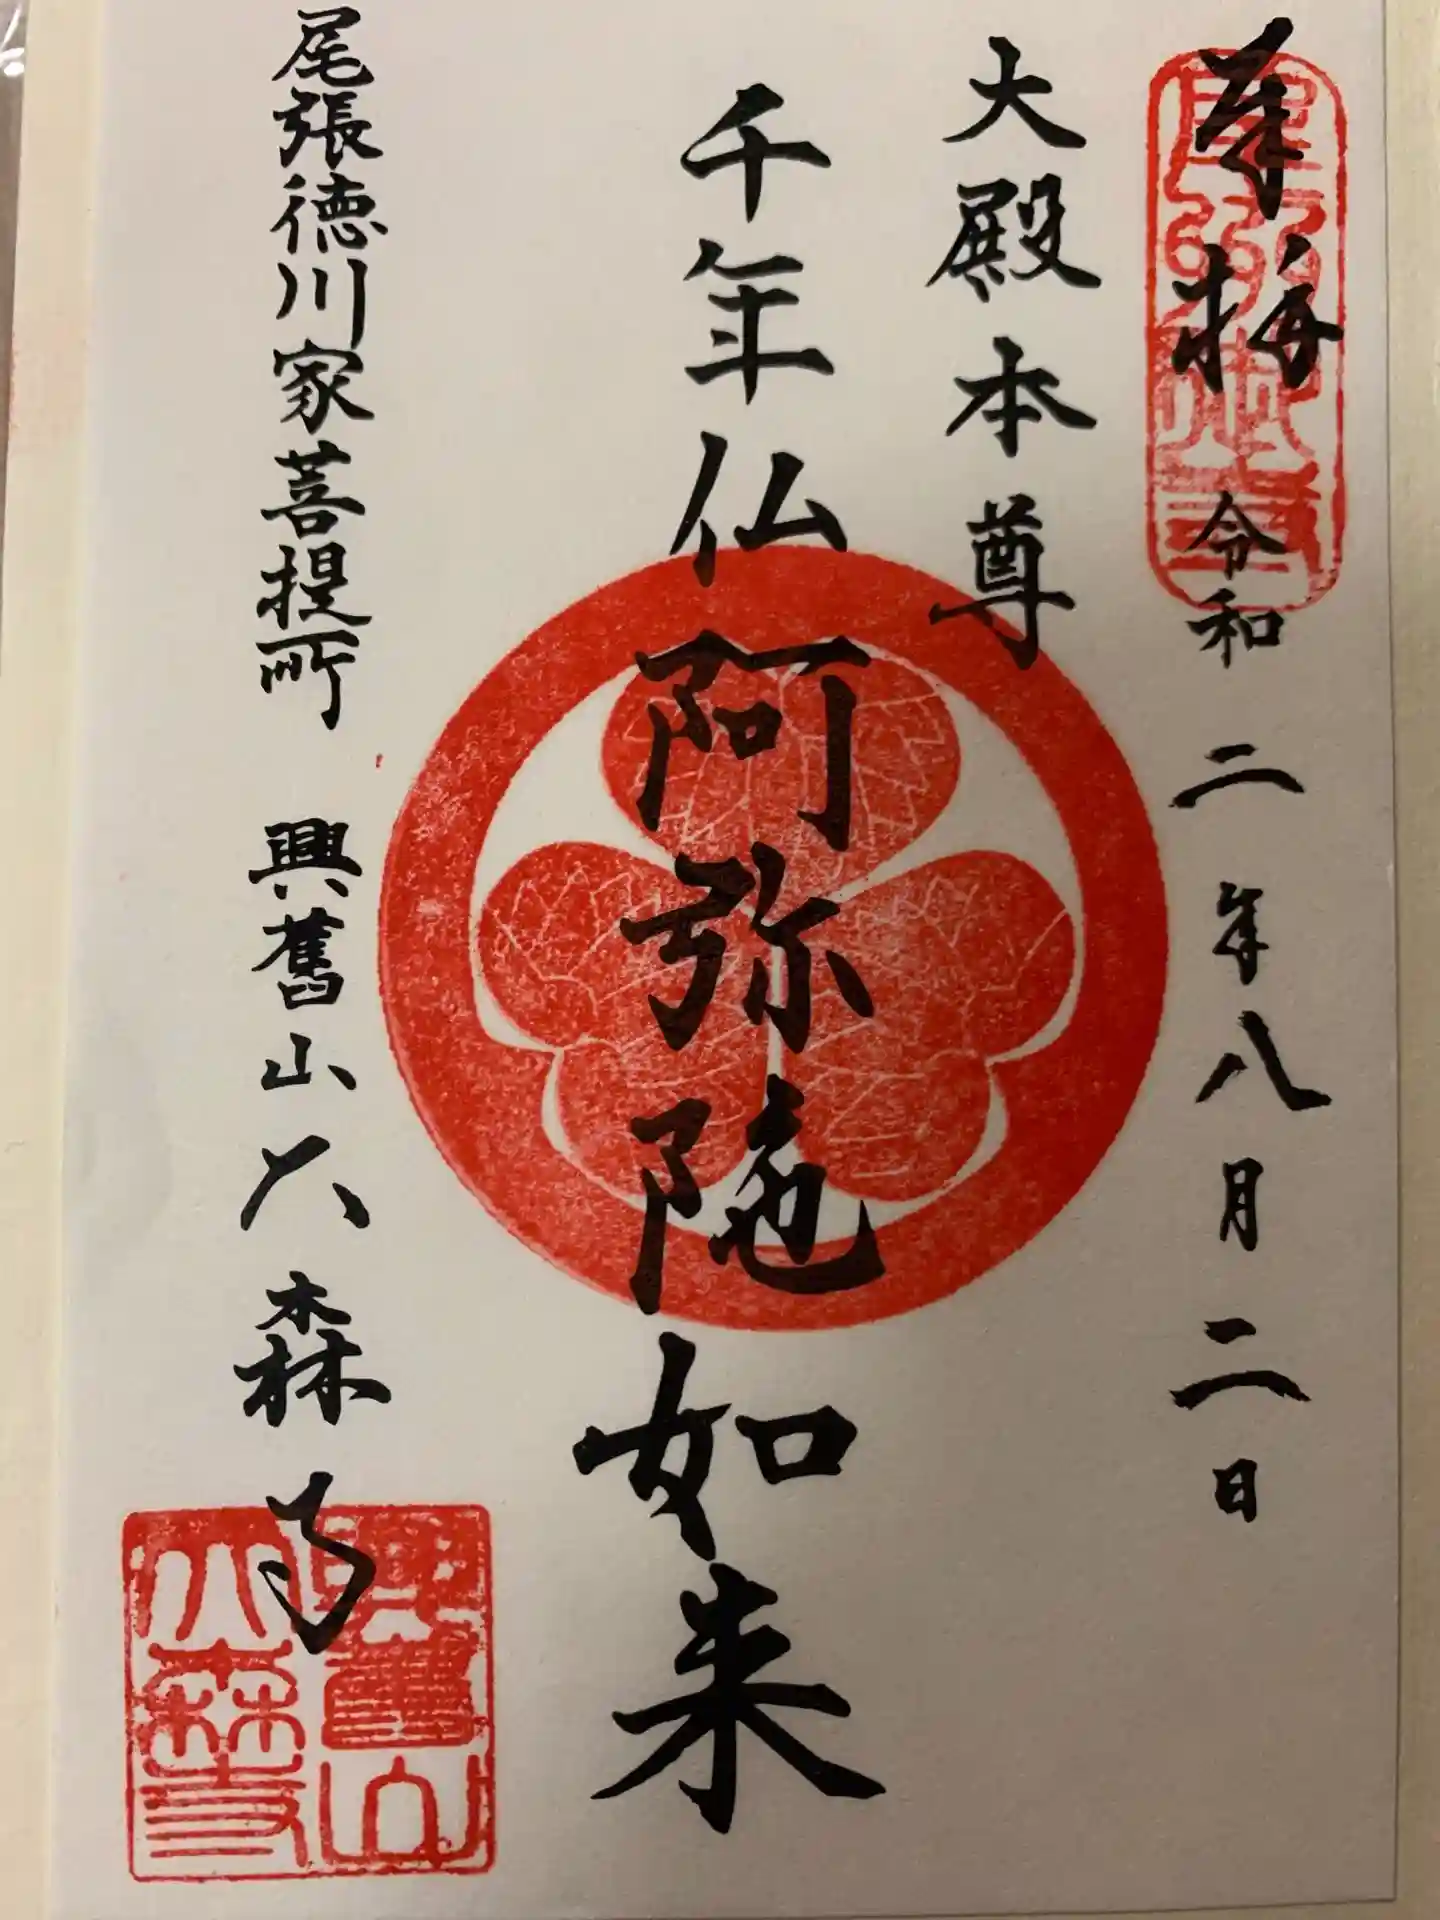 奉拝 令和二年八月二日
大殿本尊
千年仏阿弥陀如来
尾張徳川家菩提所 興舊山大森寺
興舊山
大森寺